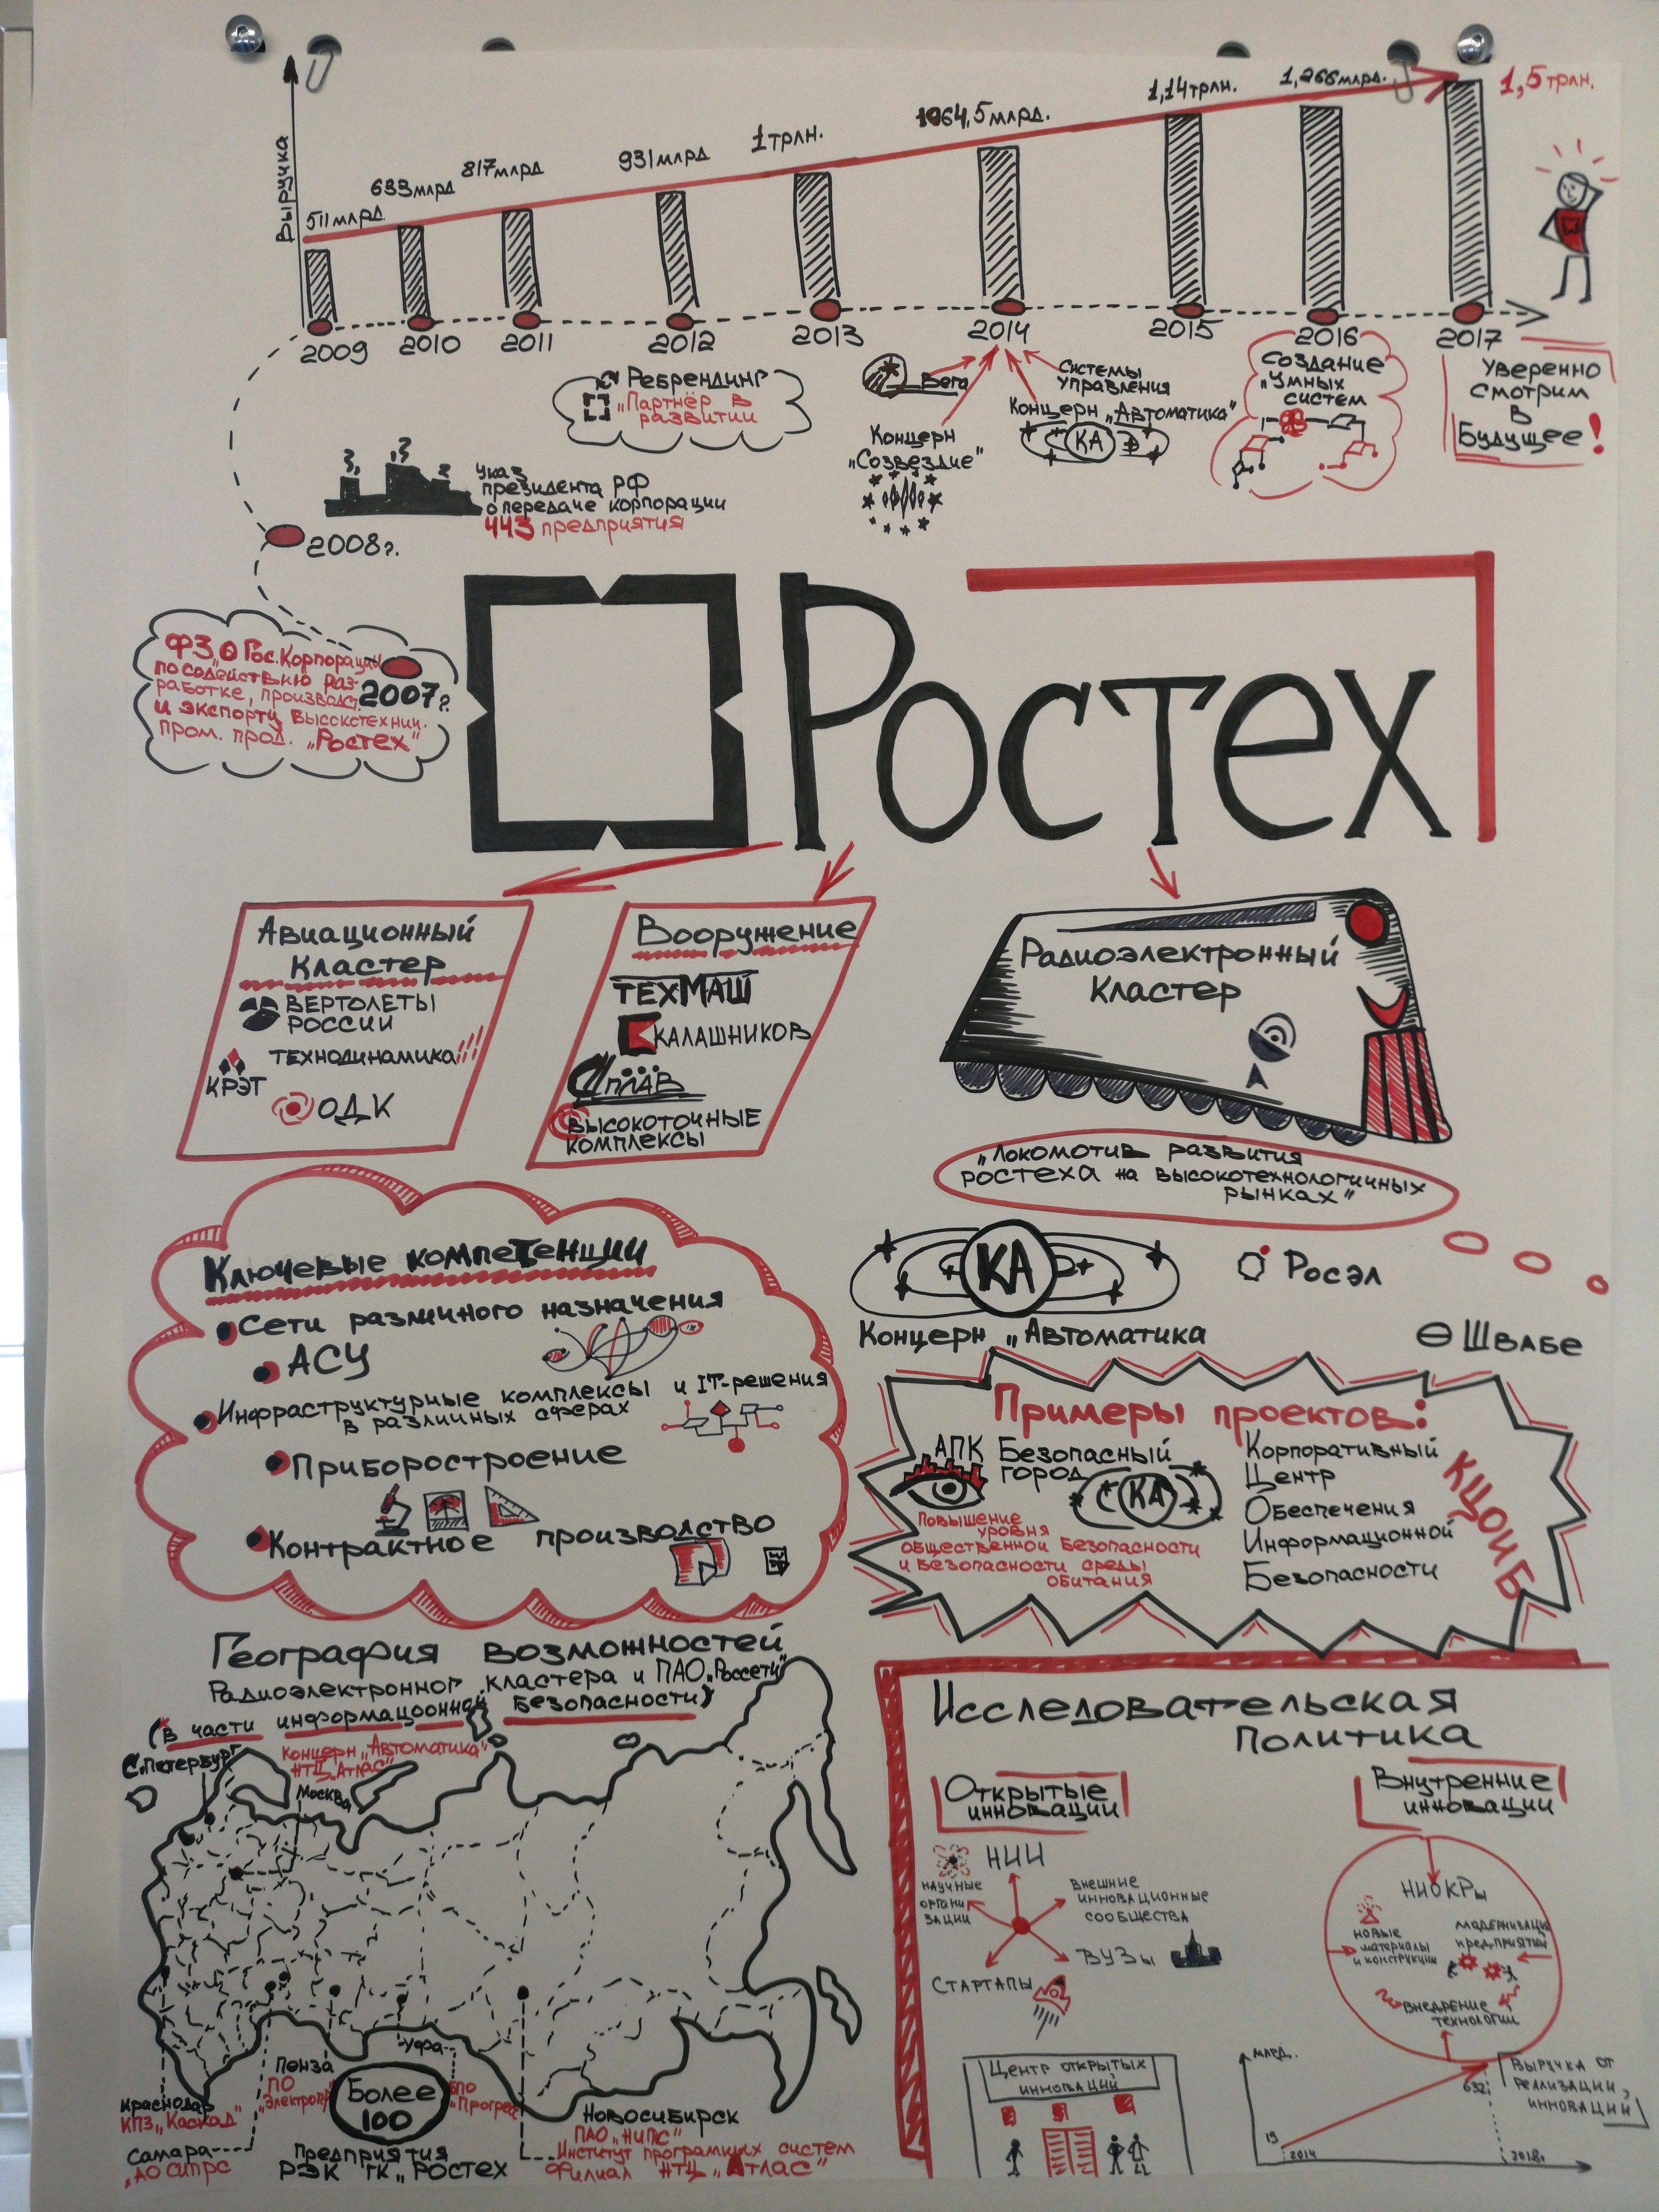 Выручка
511 млрд.
633 млрд
817 млрд
931 млрд
1 трлн.
1064,5 млрд.
1,14 трлн.
1,266 млрд.
1,5 трлн.
2009
2010
2011
2012
2013
2014
2015
2016
2017
Ребрендинг
"Партнёр в
развитии
Вега
Концерн
"Созвездие"
Системы
управления
Концерн "Автоматика"
КА
Создание
"Умных
систем
Уверенно
смотрим
в
Будущее!
Указ
президента РФ
о передаче корпорации
443 предприятия
2008г.
ФЗ "О Гос. Корпорации
по содействию раз-
работке, производст.
и экспорту высокотехнич.
пром. прод. "Ростех"
2007г.
Ростех
Авиационный
кластер
Вертолеты
России
Технодинамика
КРЭТ
ОДК
Вооружение
ТЕХМАШ
Калашников
Сплав
Высокоточные
комплексы
Радиоэлектронный
кластер
"Локомотив развития
Ростеха на высокотехнологичных
рынках"
КА
Концерн "Автоматика
Росэл
Швабе
Ключевые компетенции
Сети различного назначения
АСУ
Инфраструктурные комплексы и IT-решения
в различных сферах
Приборостроение
Контрактное производство
Примеры проектов:
АПК Безопасный
город
КА
Повышение
уровня
общественной безопасности
и безопасности среды
обитания
Корпоративный
Центр
Обеспечения
Информационной
Безопасности
КЦОИБ
География возможностей
Радиоэлектронног кластера и ПАО "Россети"
(в части информационной безопасности)
С.Петербург
Концерн "Автоматика"
НТЦ "Атлас"
Москва
Краснодар
КПЗ "Каскад"
Самара
"АО СИПРС
Пенза
ПО
"Электроп
Уфа
БПО
"Прогрес
Более
100
Предприятия
РЭК ГК "Ростех
Новосибирск
ПАО "НИПС"
Институт програмных систем
Филиал НТЦ "Атлас"
Исследовательская
политика
Открытые
инновации
НИИ
научные
органи
зации
внешние
инновационные
сообщества
ВУЗы
Стартапы
Центр открытых
инноваций
Внутренние
инновации
НИОКРы
новые
материалы
и конструкции
модернизация
предприятий
внедрение
технологий
млрд.
19
2014
632
2018г
Выручка от
реализации,
инноваций